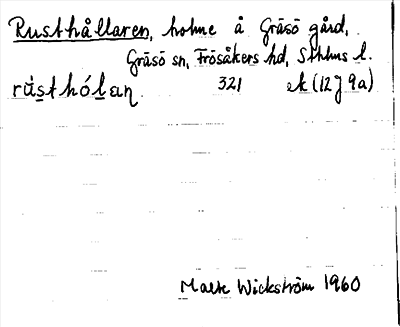 Rusthållaren, holme å Gräsö gård,
Gräsö sn, Frösåkers hd, Sthlms l.
rùsthólan 321 ek (12J 9a)
Malte Wickström 1960